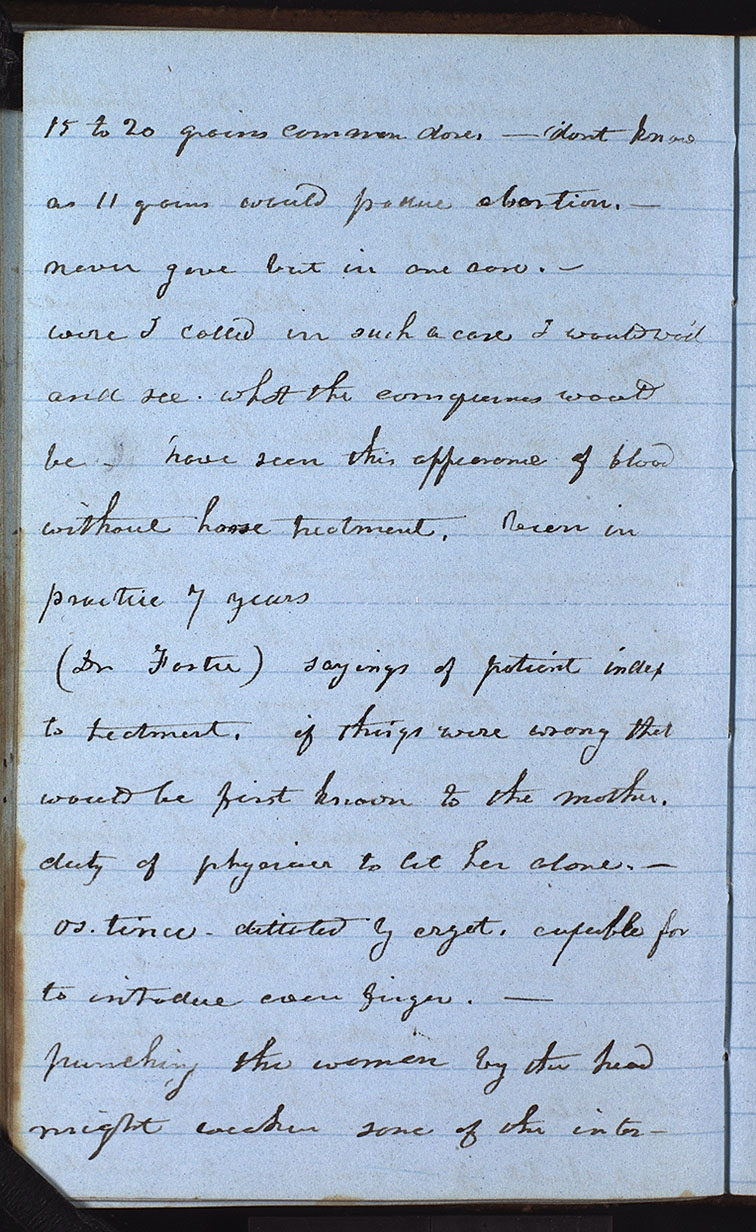 15 to 20 grains common dose, — dont know
as 11 grains would produce abortion. —
never gave but in one case. —
were I called in such a case I would wait
and see what the consequences would
be — have seen this appearance of blood
without harse treatment. Been in
practice 7 years
(Dr Foster) sayings of patient index
to treatment. if things were wrong that
would be first known to the mother.
duty of physician to let her alone. —
os. tince - by ergot. for
to introduce even finger. —
punching the woman by the head
might weaken some of the inter-